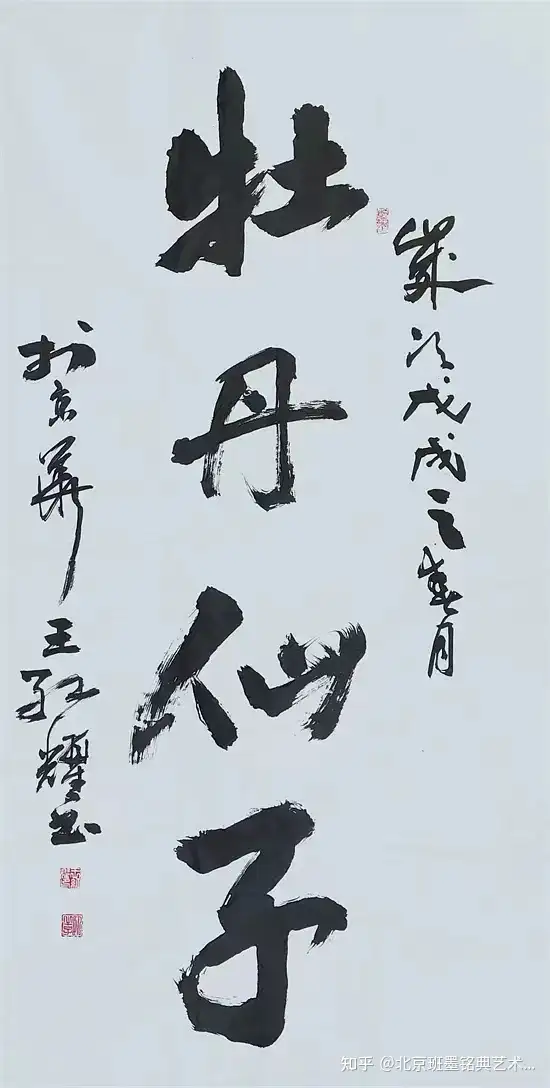 歲次戊戌之春月
牡丹仙子
於京華
王红耀书
知乎 @北京班墨铭典艺术...